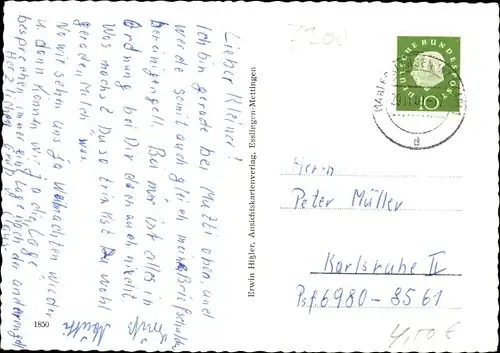 7300
Lieber Kleiner!
Ich bin gerade bei Mutti oben und
werde somit auch gleich meine Briefschulden
bereinigen. Bei mir ist alles in
Ordnung bei Dir doch auch nicht
Was machst Du so trinkst Du wohl
gerade „Milch" was.
Na wir sehen uns ja Weihnachten wieder
u. dann können wir ja die Lage
besprechen. immer eine Lage nach der anderen
Herzlichen Gruß
Mutti
1850
Erwin Hißler, Ansichtskartenverlag, Esslingen-Mettingen
DEUTSCHE BUNDESPOST
10
d
Herrn
Peter Müller
Karlsruhe II
Psf. 6980-8561
4,50 €